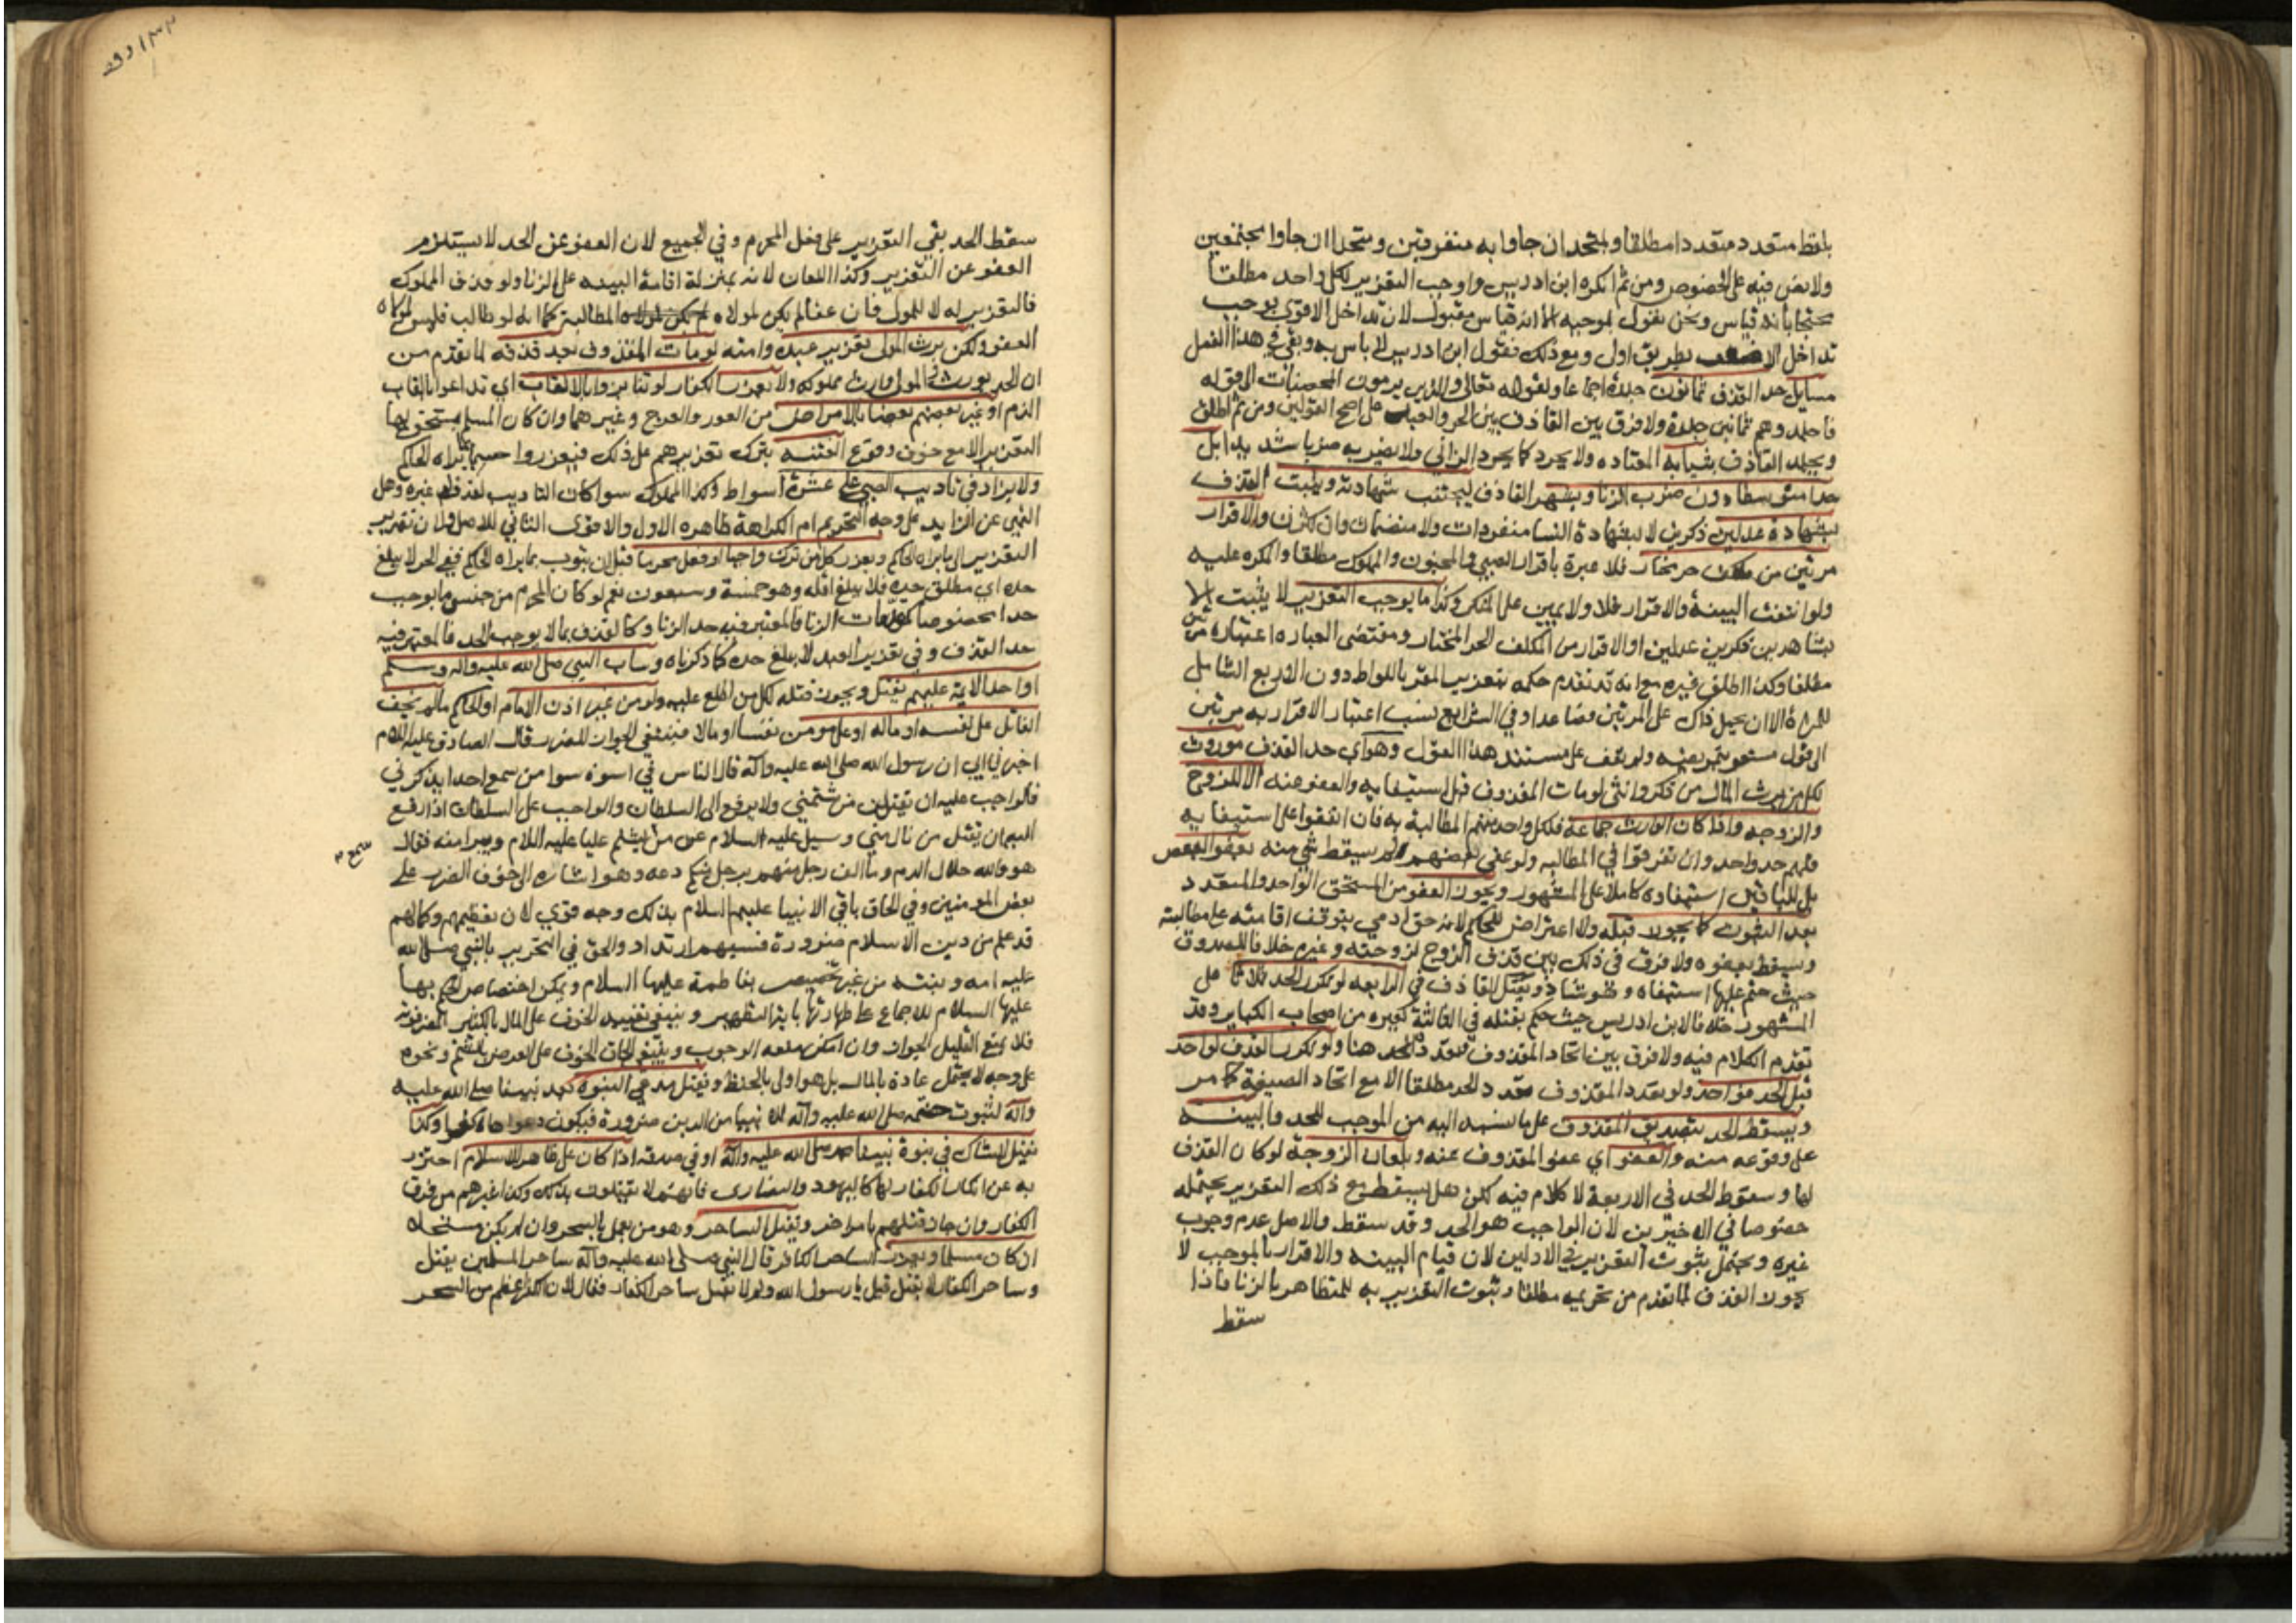 بلفظ متعدد متعددا مطلقا وبمتحد ان جاوا به متفرقين ومتحدا ان جاوا مجتمعين
ولا نص فيه على الخصوص ومن ثم انكره ابن ادريس واوجب التعزير لكل واحد مطلقا
محتجا بانه قياس ونحن نقول بموجبه الا انه قياس مقبول لان تداخل الاقوى يوجب
تداخل الاضعف بطريق اولى ومع ذلك فقول ابن ادريس لا باس به وبقي في هذا الفصل
مسايل حد القذف ثمانون جلدة اجماعا ولقوله تعالى والذين يرمون المحصنات الى قوله
فاجلدوهم ثمانين جلدة ولا فرق بين القاذف بين الحر والعبد على اصح القولين ومن ثم اطلق
ويجلد القاذف بثيابه المعتاده ولا يجرد كما يجرد الزاني ولا يضرب ضربا شديدا بل
حدا متوسطا دون ضرب الزنا ويشهر القاذف ليجتنب شهادته ويثبت القذف
بشهادة عدلين ذكرين لا بشهادة النسا منفردات ولا منضمات وان كثرن والاقرار
مرتين من مكلف حر مختار فلا عبرة باقرار الصبي والمجنون والمملوك مطلقا والمكره عليه
ولو انتفت البينة والاقرار فلا حد ولا يمين على المنكر وكذا ما يوجب التعزير لا يثبت الا
بشاهدين ذكرين عدلين او الاقرار من المكلف الحر المختار ومقتضى العباره اعتباره مرتين
مطلقا وكذا اطلق غيره مع انه قد تقدم حكمه بتعزير المقر باللواط دون الاربع الشامل
للمرة الا ان يحمل ذاك على المرتين فصاعدا وفي الشرايع نسب اعتبار الاقرار به مرتين
الى قول مشعرا بتمريضه ولم نقف على مستند هذا القول وهو اي حد القذف موروث
لكل من يرث المال من ذكر وانثى لو مات المقذوف قبل استيفايه والعفو عنه الا للزوج
والزوجه واذا كان الوارث جماعة فلكل واحد منهم المطالبة به فان اتفقوا على استيفايه
فلهم حد واحد وان تفرقوا في المطالبه ولو عفى بعضهم لم يسقط شي منه بعفو البعض
بل للباقين استيفاوه كاملا على المشهور ويجوز العفو من المستحق الواحد والمتعدد
بعد الثبوت كما يجوز قبله ولا اعتراض للحاكم لانه حق ادمي يتوقف اقامته على مطالبته
ويسقط بعفوه ولا فرق في ذلك بين قذف الزوج لزوجته وغيره خلافا للصدوق
حيث حتم عليها استيفاه وهو شاذ ويقتل القاذف في الرابعه لو تكرر الحد ثلاثا على
المشهور خلافا لابن ادريس حيث حكم بقتله في الثالثة كغيره من اصحاب الكباير وقد
تقدم الكلام فيه ولا فرق بين اتحاد المقذوف وتعدده هنا ولو تكرر القذف لواحد
قبل الحد فواحد ولو تعدد المقذوف تعدد الحد مطلقا الا مع اتحاد الصيغة كما مر
ويسقط الحد بتصديق المقذوف على ما نسبه اليه من الموجب للحد والبينه
على وقوعه منه والعفو اي عفو المقذوف عنه وبلعان الزوجة لو كان القذف
لها وسقوط الحد في الاربعة لا كلام فيه لكن هل يسقط مع ذلك التعزير يحتمله
خصوصا في الاخيرين لان الواجب هو الحد وقد سقط والاصل عدم وجوب
غيره ويحتمل ثبوت التعزير في الاولين لان قيام البينه والاقرار بالموجب لا
يجوز القذف لما تقدم من تحريمه مطلقا وثبوت التعزير به للمتظاهر بالزنا فاذا
سقط
١٣٢ وقف
سقط الحد بقي التعزير على فعل المحرم وفي الجميع لان العفو عن الحد لا يستلزم
العفو عن التعزير وكذا اللعان لانه بمنزلة اقامة البينه على الزنا ولو قذف المملوك
فالتعزير له لا للمولى فان عفا لم يكن لمولاه المطالبة كما انه لو طالب فليس لمولاه
العفو ولكن يرث المولى تعزير عبده وامته لو مات المقذوف بعد قذفه لما تقدم من
ان الحد يورث والمولى وارث مملوكه ولا يعزر الكفار لو تنابزوا بالالقاب اي تداعوا بالقاب
الذم او عير بعضهم بعضا بالامراض من العور والعرج وغيرهما وان كان المسلم يستحق بها
التعزير الا مع خوف وقوع الفتنه بترك تعزيرهم على ذلك فيعزروا حسبما يراه الحاكم
ولا يزاد في تاديب الصبي على عشرة اسواط وكذا المملوك سوا كان التاديب لقذف او غيره وهل
النهي عن الزايد على وجه التحريم ام الكراهة ظاهره الاول والاقوى الثاني للاصل ولان تقدير
التعزير الى ما يراه الحاكم ويعزر كل من ترك واجبا او فعل محرما قبل ان يتوب بما يراه الحاكم ففي الحر لا يبلغ
حده اي مطلق حده فلا يبلغ اقله وهو خمسة وسبعون نعم لو كان المحرم من جنس ما يوجب
حدا مخصوصا كمقدمات الزنا فالمعتبر فيه حد الزنا وكالقذف بما لا يوجب الحد فالمعتبر فيه
حد القذف وفي تعزير العبد لا يبلغ حده كما ذكرناه وساب النبي صلى الله عليه واله وسلم
او احد الايمة عليهم يقتل ويجوز قتله لكل من اطلع عليه ولو من غير اذن الامام او الحاكم ما لم يخف
القاتل على نفسه او ماله او على مومن نفسا او مالا فينتفي الجواز للضرر قال الصادق عليه السلام
اخبرني ابي ان رسول الله صلى الله عليه وآله قال الناس في اسوة سوا من سمع احدا يذكرني
فالواجب عليه ان يقتل من شتمني ولا يرفع الى السلطان والواجب على السلطان اذا رفع
اليه ان يقتل من نال مني وسيل عليه السلام عن من يشتم عليا عليه السلام ويبرا منه فقال
سمع
هو والله حلال الدم وما الف رجل منهم برجل منكم دعه وهو اشاره الى خوف الضرر على
بعض المومنين وفي الحاق باقي الانبيا عليهم السلام بذلك وجه قوي لان تعظيمهم وكمالهم
قد علم من دين الاسلام ضرورة فسبهم ارتداد والحق في التحرير بالنبي صلى الله
عليه امه وبنته من غير تخصيص بفاطمة عليها السلام ويمكن اختصاص الحكم بها
عليها السلام للاجماع على طهارتها باية التطهير وينبغي تقييد الخوف على المال بالكثير المضر فوته
فلا يمنع القليل الجواز وان امكن منعه الوجوب وينبغي الحاق الخوف على العرض بالشتم ونحوه
على وجه لا يحتمل عادة بالمال بل هو اولى بالحفظ ويقتل مدعي النبوة بعد نبينا صلى الله عليه
وآله لثبوت ختمه صلى الله عليه وآله للانبيا من الدين ضرورة فيكون دعواها كفرا وكذا
يقتل الشاك في نبوة نبينا محمد صلى الله عليه وآله او في صدقه اذا كان على ظاهر الاسلام احترز
به عن انكار الكفار لها كاليهود والنصارى فانهم لا يقتلون بذلك وكذا غيرهم من فرق
الكفار وان جاز قتلهم بامر اخر ويقتل الساحر وهو من يعمل بالسحر وان لم يكن مستحله
ان كان مسلما ويعزر الساحر الكافر قال النبي صلى الله عليه وآله ساحر المسلمين يقتل
وساحر الكفار لا يقتل قيل يا رسول الله ولم لا يقتل ساحر الكفار فقال لان الكفر اعظم من السحر